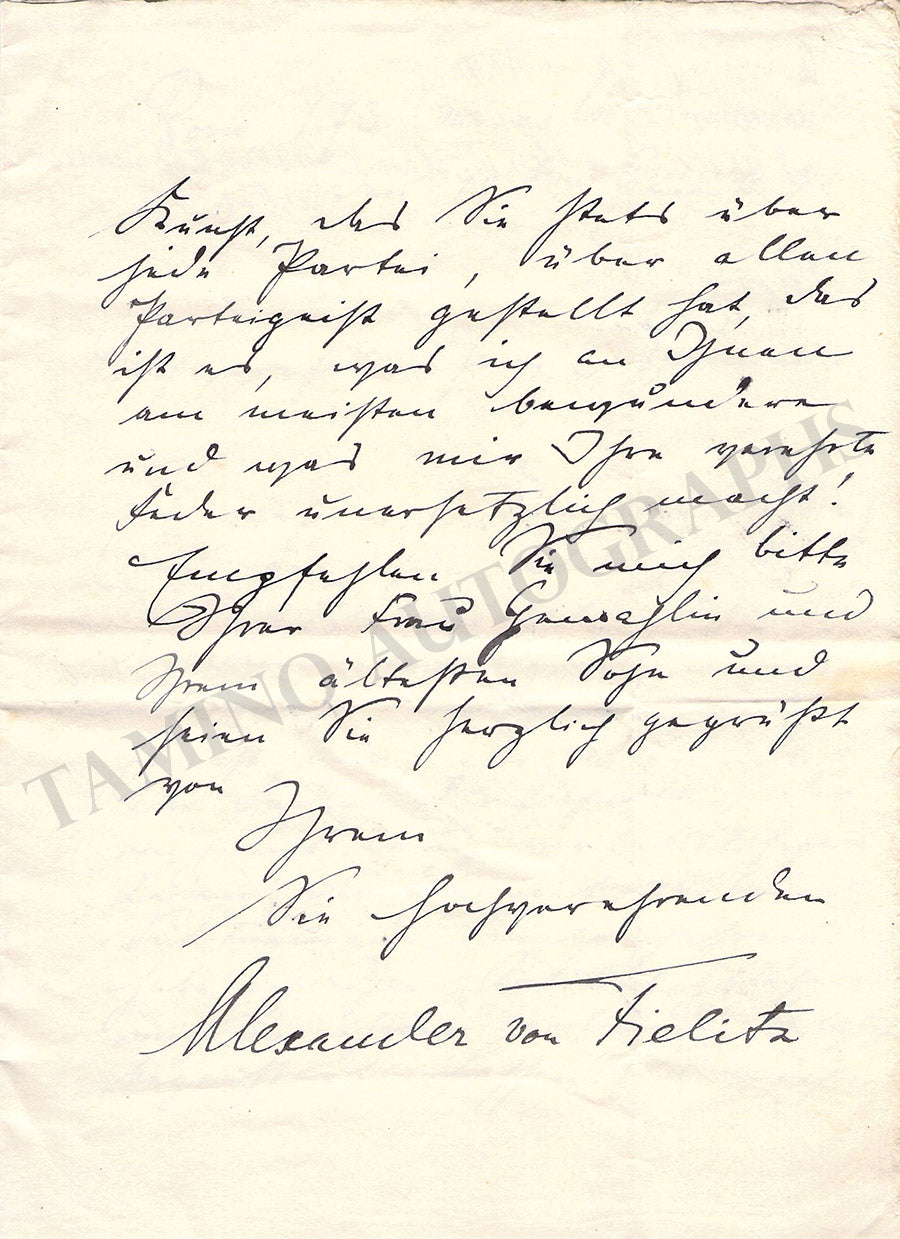 Kunst, das Sie stets über
jede Partei, über allen
Parteigeist gestellt hat, das
ist es, was ich an Ihnen
am meisten bewundere
und was mir Ihre verehrte
Feder unersetzlich macht!
Empfehlen Sie mich bitte
Ihrer Frau Gemahlin und
Ihrem ältesten Sohn und
seien Sie herzlich gegrüßt
von
Ihrem
Sie hochverehrenden
Alexander von Fielitz
TAMINO AUTOGRAPHS